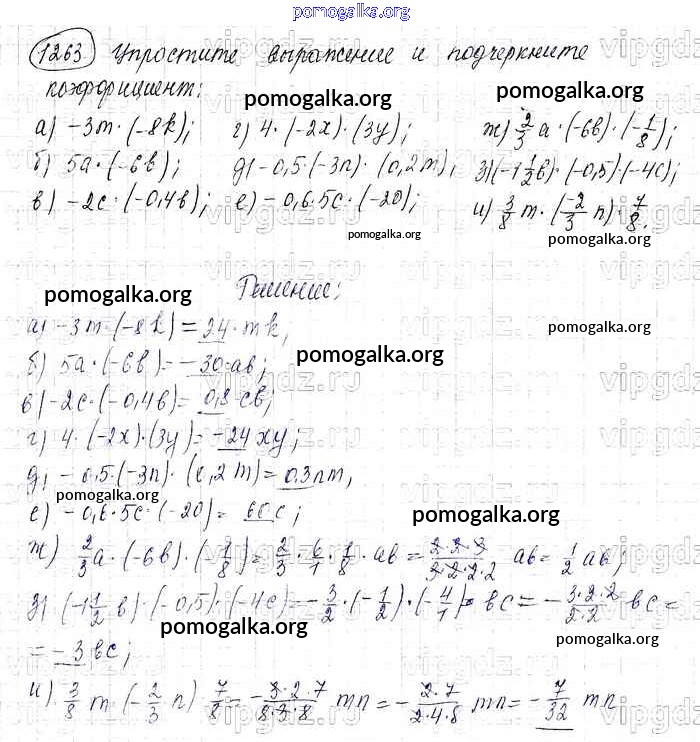 pomogalka.org
1263 Упростите выражение и подчеркните
коэффициент:
pomogalka.org
а) -3m·(-8k); г) 4·(-2x)·(3y); ж) 2/3 a·(-6в)·(-1/8);
pomogalka.org
б) 5a·(-6в); д) -0,5·(-3n)·(0,2m), з)(-1 1/2 в)·(-0,5)·(-4c);
pomogalka.org
в) -2c·(-0,4в); е) -0,6·5c·(-20); и) 3/8 m·(-2/3 n)·7/8.
pomogalka.org
pomogalka.org
Решение:
pomogalka.org
а) -3m·(-8k)=24·mk,
pomogalka.org
б) 5a·(-6в)=-30·aв;
pomogalka.org
в) -2c·(-0,4в)=0,8·cв;
г) 4·(-2x)·(3y)=-24xy;
д) -0,5·(-3n)·(0,2m)=0,3nm,
pomogalka.org
е) -0,6·5c·(-20)=60c;
pomogalka.org
ж) 2/3 a·(-6в)·(-1/8)=2/3·6/1·1/8·aв=2·2·3/3·2·2·2 aв=1/2 aв;
з) (-1 1/2 в)·(-0,5)·(-4c)=-3/2·(-1/2)·(-4/1)·вc=-3·2·2/2·2 вc=
pomogalka.org
pomogalka.org
=-3вc;
и) 3/8 m·(-2/3 n)·7/8=-3·2·7/8·3·8 mn=-2·7/2·4·8 mn=-7/32 mn
vipgdz.ru